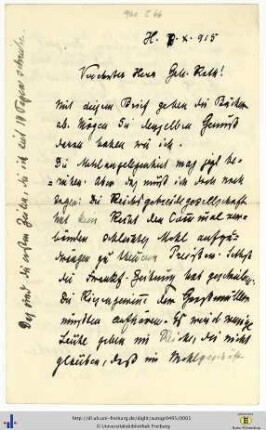 H. 7-X-915
Verehrter Herr Geh. Rath!
Mit diesem Brief gehen die Bücher
ab. Mögen Sie denselben Genuß
daran haben wie ich.
Die Mehlangelegenheit mag jetzt be-
ruhen. Aber das muß ich doch noch
sagen: die Reichsgetreidegesellschaft
hat kein Recht den Communalver-
bänden schlechtes Mehl aufzu-
drängen zu theuren Preisen. Selbst
die Frankf. Zeitung hat geschrieben,
die Riesengewinne der Großmühlen
müßten aufhören. Es wird wenige
Leute geben im Reiche, die nicht
glauben, daß im Mehlgeschäft
Das sind die ersten Zeilen, die ich seit 14 Tagen schreibe.
http://dl.ub.uni-freiburg.de/diglit/autogr0495/0001
© Universitätsbibliothek Freiburg